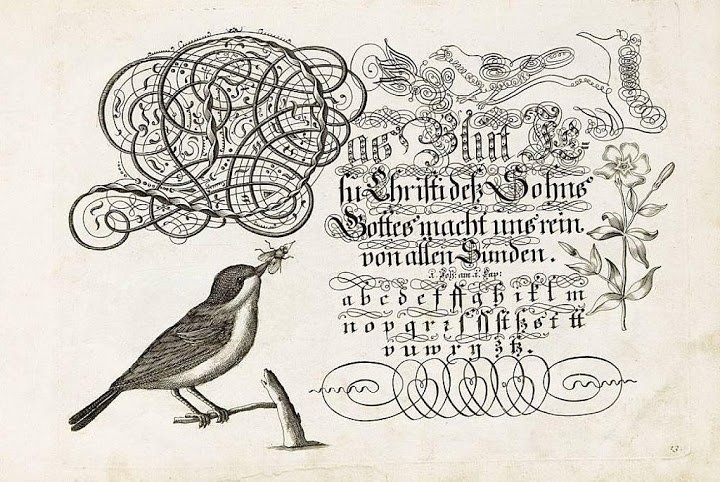 Das Blut Je=
su Christi deß Sohns
Gottes macht uns rein.
von allen Sünden.
1. Joh: am 1. Cap:
a b c d e f ff g h i k l m
n o p q r ſ ſſ ſt ß s t tt
v u w x y z tz.
13.